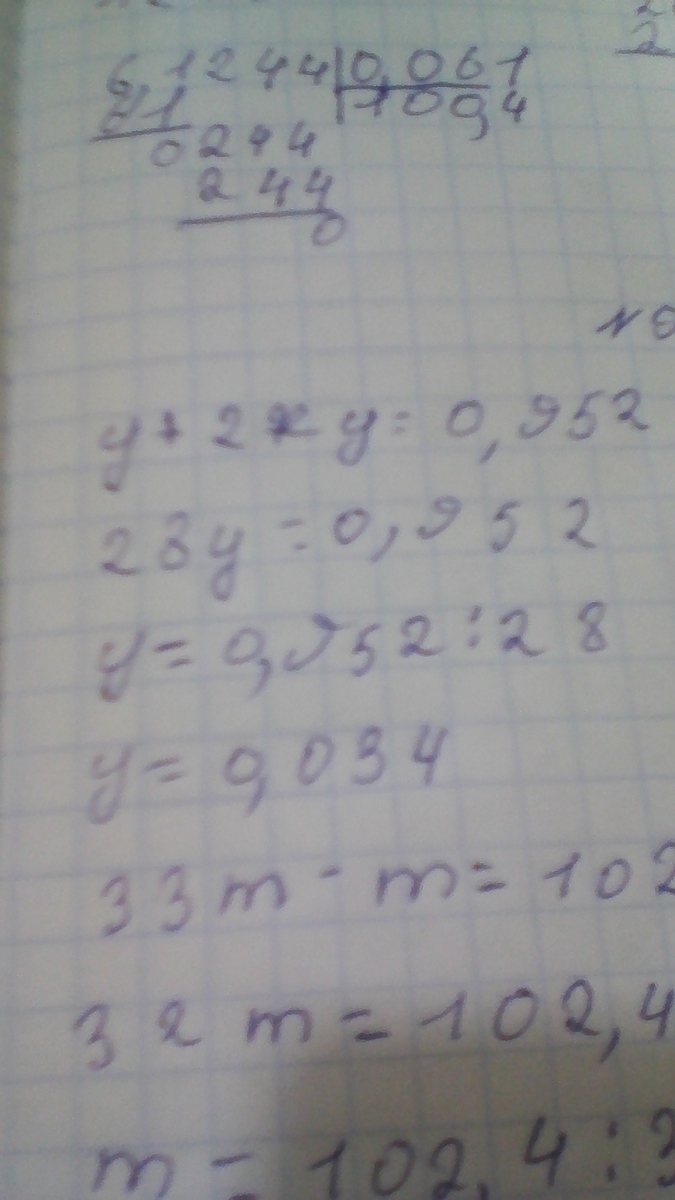 6,1244 0,061
61 100,4
0244
244
0
№
y + 27y = 0,952
28y = 0,952
y = 0,952 : 28
y = 0,034
33m - m = 102
32m = 102,4
m = 102,4 : 3